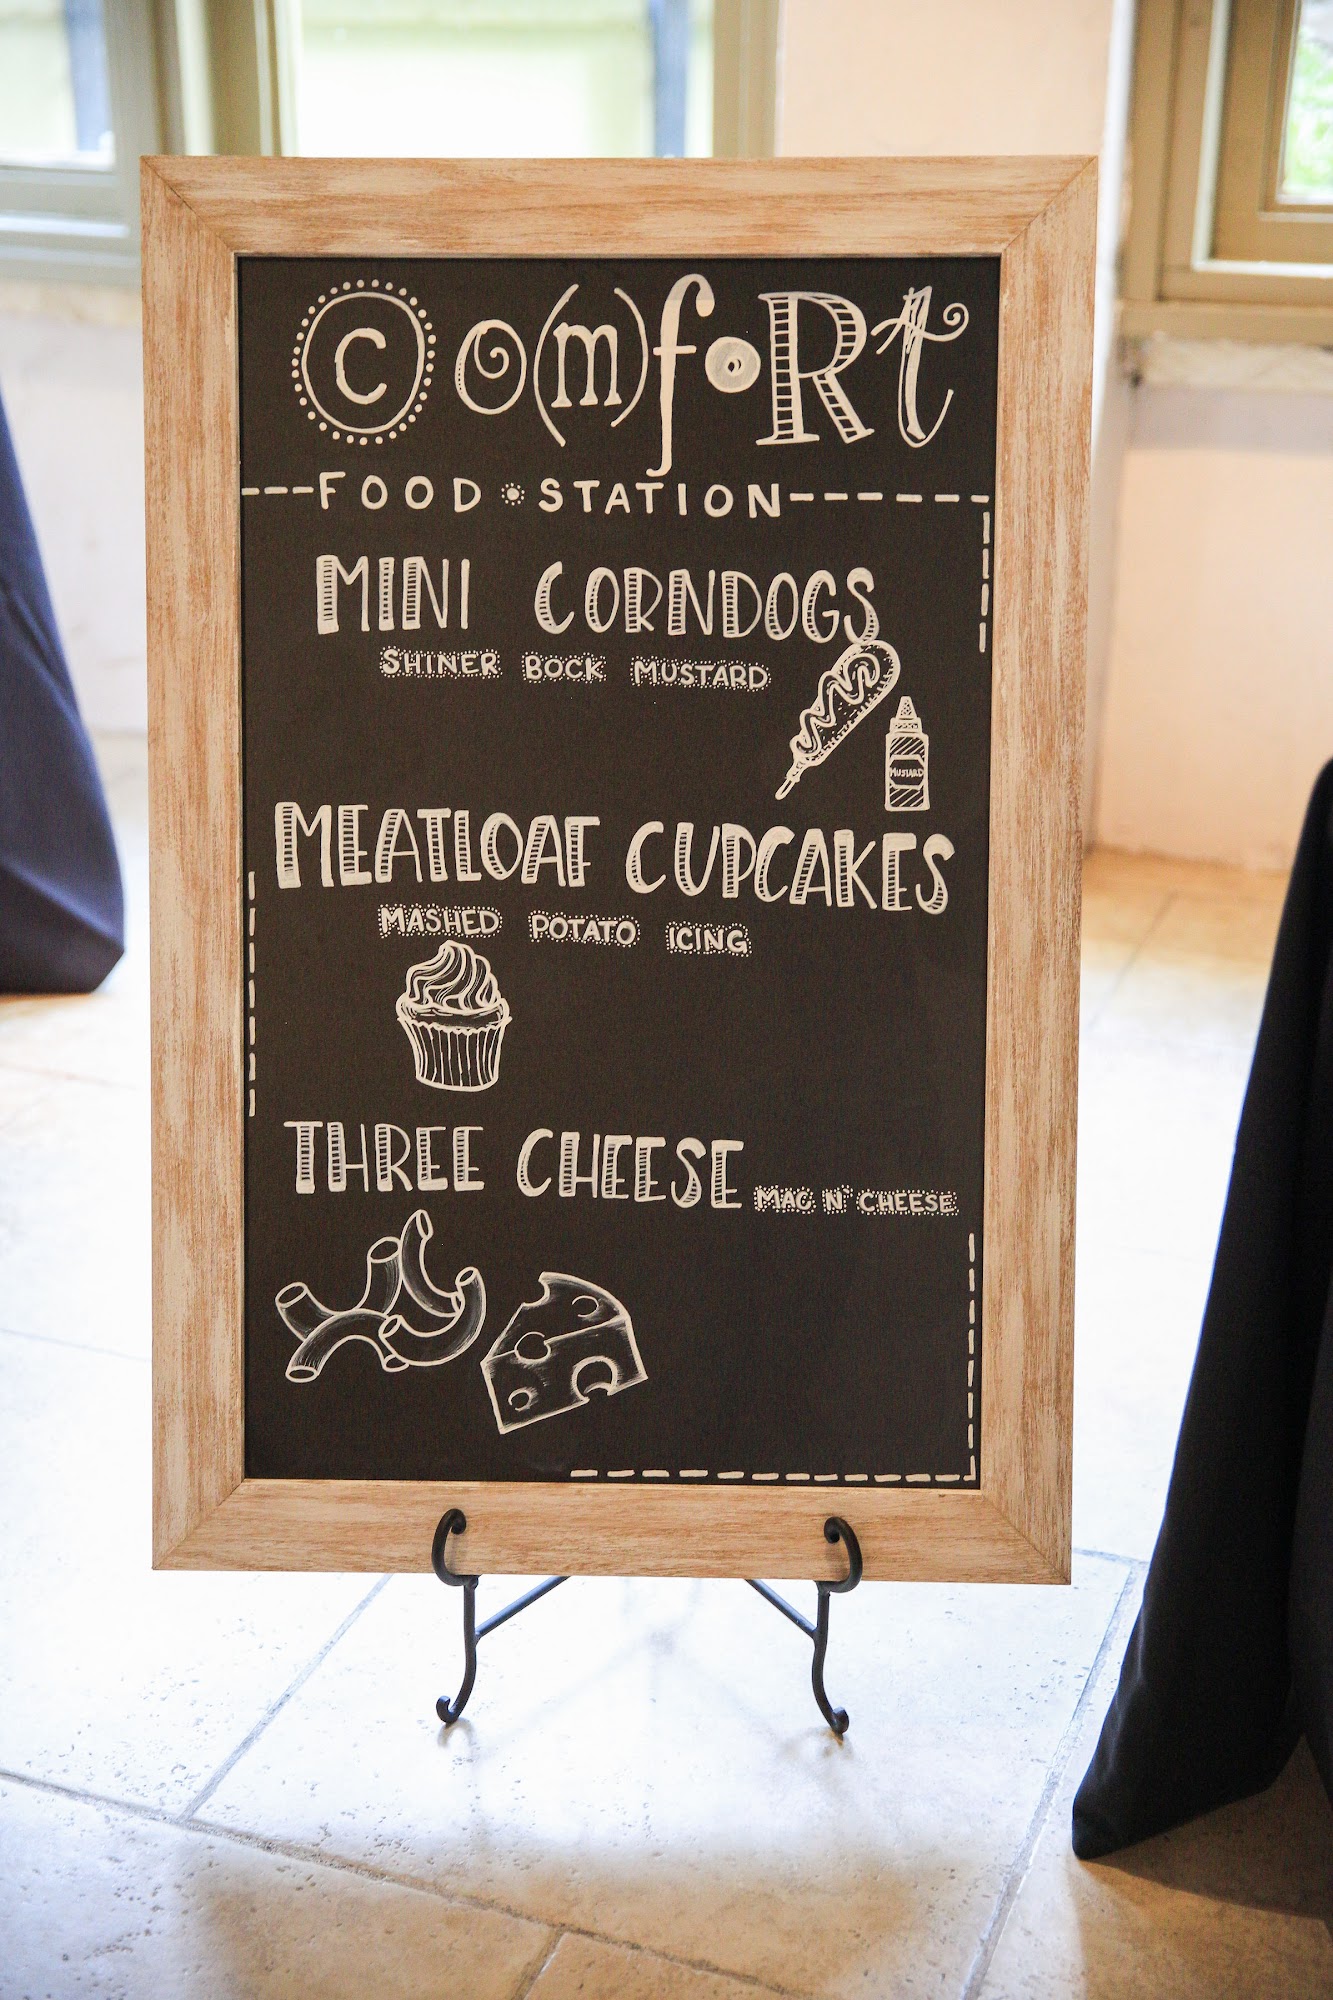 Co(m)foRt
FOOD STATION
MINI CORNDOGS
SHINER BOCK MUSTARD
MUSTARD
MEATLOAF CUPCAKES
MASHED POTATO ICING
THREE CHEESE MAC N' CHEESE